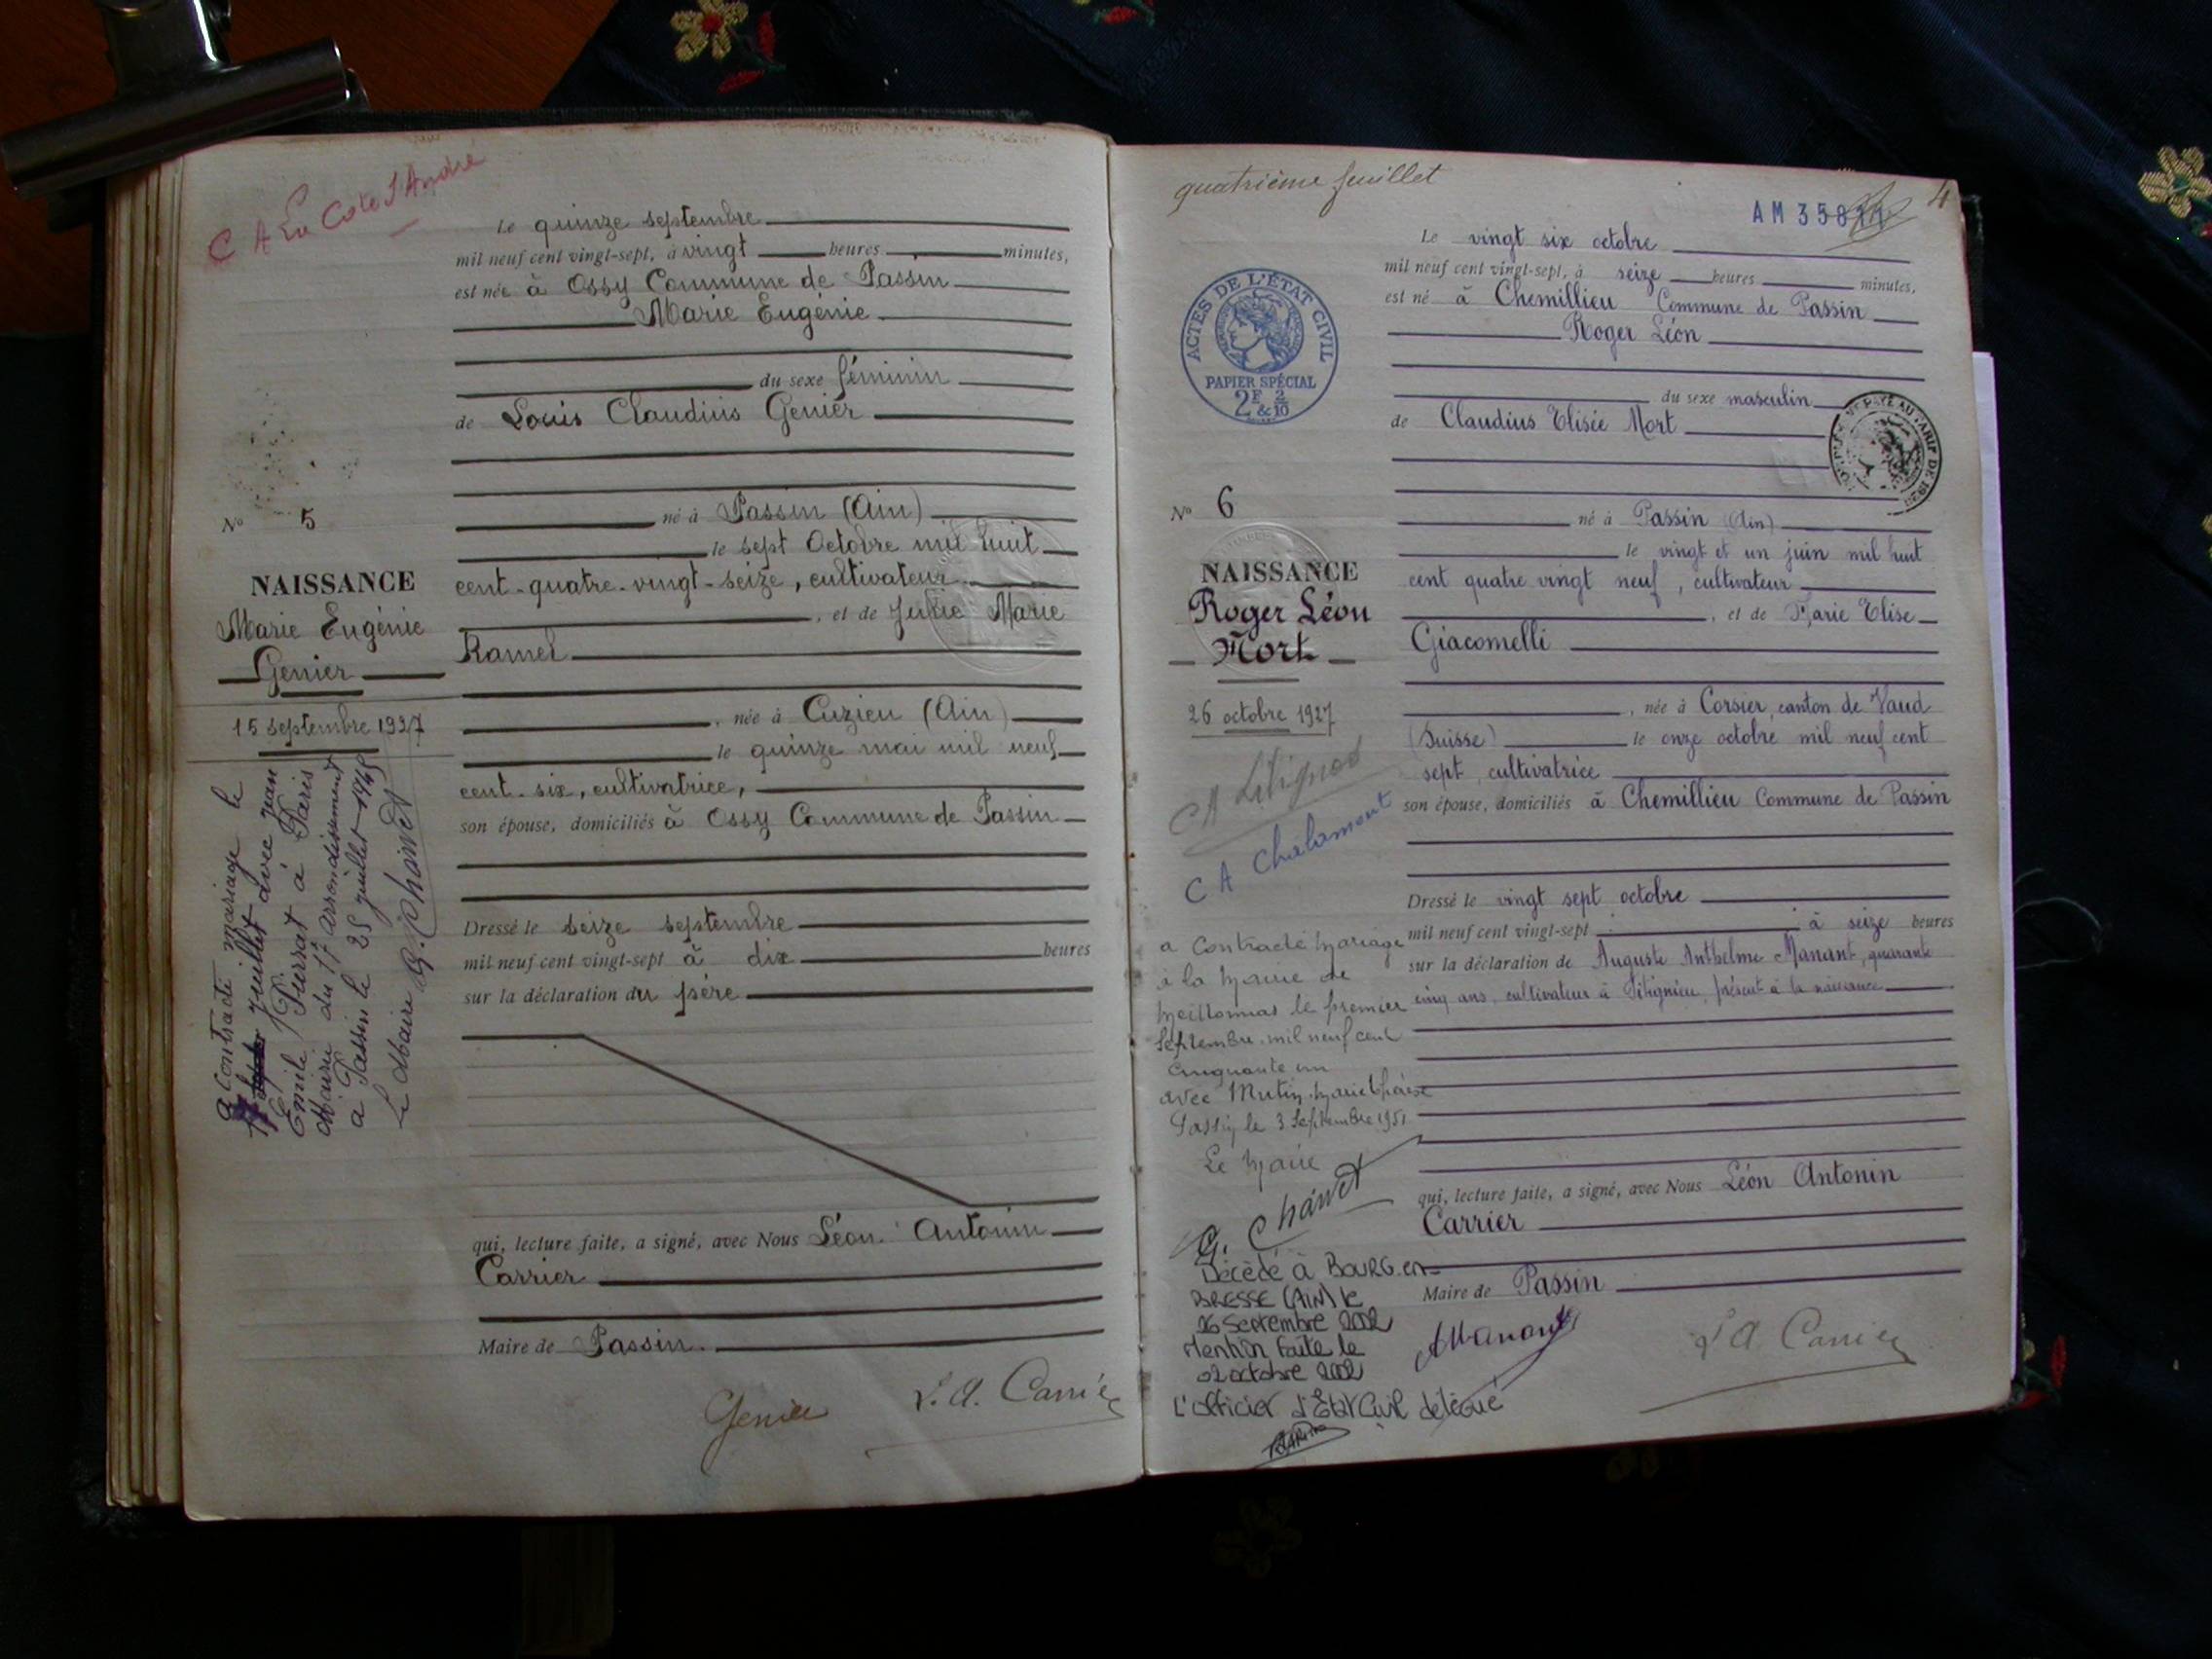 C A La Côte St André
Le quinze septembre
mil neuf cent vingt-sept, à vingt heures minutes,
est née à Ossy Commune de Passin
Marie Eugénie
du sexe féminin
de Louis Claudius Genier
né à Passin (Ain)
le sept Octobre mil huit
cent-quatre-vingt-seize, cultivateur
, et de Julie Marie
Ramel
, née à Cuzieu (Ain)
le quinze mai mil neuf
cent-six, cultivatrice,
son épouse, domiciliés à Ossy Commune de Passin
Dressé le seize septembre
mil neuf cent vingt-sept à dix heures
sur la déclaration du père
qui, lecture faite, a signé, avec Nous Léon Antonin
Carrier
Maire de Passin
Genier
L. A. Carrier
No 5
NAISSANCE
Marie Eugénie
Genier
15 septembre 1927
a contracté mariage le
juillet avec Jean
Emile à Paris
Mairie du 17e arrondissement
a Passin le 25 juillet 1945
Le Maire G. Chanet
quatrième feuillet
4
AM 358
ACTES DE L'ÉTAT CIVIL
PAPIER SPÉCIAL
2F & 2/10
Le vingt six octobre
mil neuf cent vingt-sept, à seize heures minutes,
est né à Chemillieu Commune de Passin
Roger Léon
du sexe masculin
de Claudius Elisée Mort
né à Passin (Ain)
le vingt et un juin mil huit
cent quatre vingt neuf, cultivateur
, et de Marie Elise
Giacomelli
, née à Corsier, canton de Vaud
(Suisse) le onze octobre mil neuf cent
sept, cultivatrice
son épouse, domiciliés à Chemillieu Commune de Passin
Dressé le vingt sept octobre
mil neuf cent vingt-sept à seize heures
sur la déclaration de Auguste Anthelme Manant, quarante
cinq ans, cultivateur à présent à la naissance
qui, lecture faite, a signé, avec Nous Léon Antonin
Carrier
Maire de Passin
AManant
L A Carrier
No 6
NAISSANCE
Roger Léon
Mort
26 octobre 1927
C A
C A Chalamont
a Contracté Mariage
à la Mairie de
Meillonnas le premier
Septembre mil neuf cent
cinquante un
avec Mutin Marie Thérèse
Passin le 3 Septembre 1951
Le Maire
G. Chanet
Décédé à BOURG-en-
BRESSE (AIN) le
26 Septembre 2002
Mention faite le
02 octobre 2002
L'officier d'Etat Civil délégué